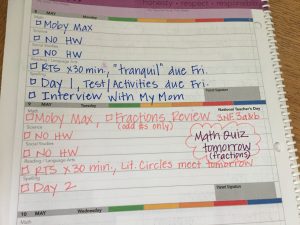 honesty • respect • responsible
8 MAY Monday
☐ Moby Max
☐ NO HW
☐ NO HW
☐ RTS x30 min., "tranquil" due Fri.
☐ Day 1, Test/Activities due Fri.
☐ Interview With My Mom
Parent Signature
9 MAY
National Teacher's Day
Math
☐ Moby Max, ☐ Fractions Review 3NF3a&b
(odd #s only)
Science
☐ NO HW
Social Studies
☐ NO HW
Math Quiz
tomorrow
(fractions)
Reading / Language Arts
☐ RTS x30 min., Lit. Circles meet tomorrow
Spelling
☐ Day 2
Parent Signature
10 MAY Wednesday
Math